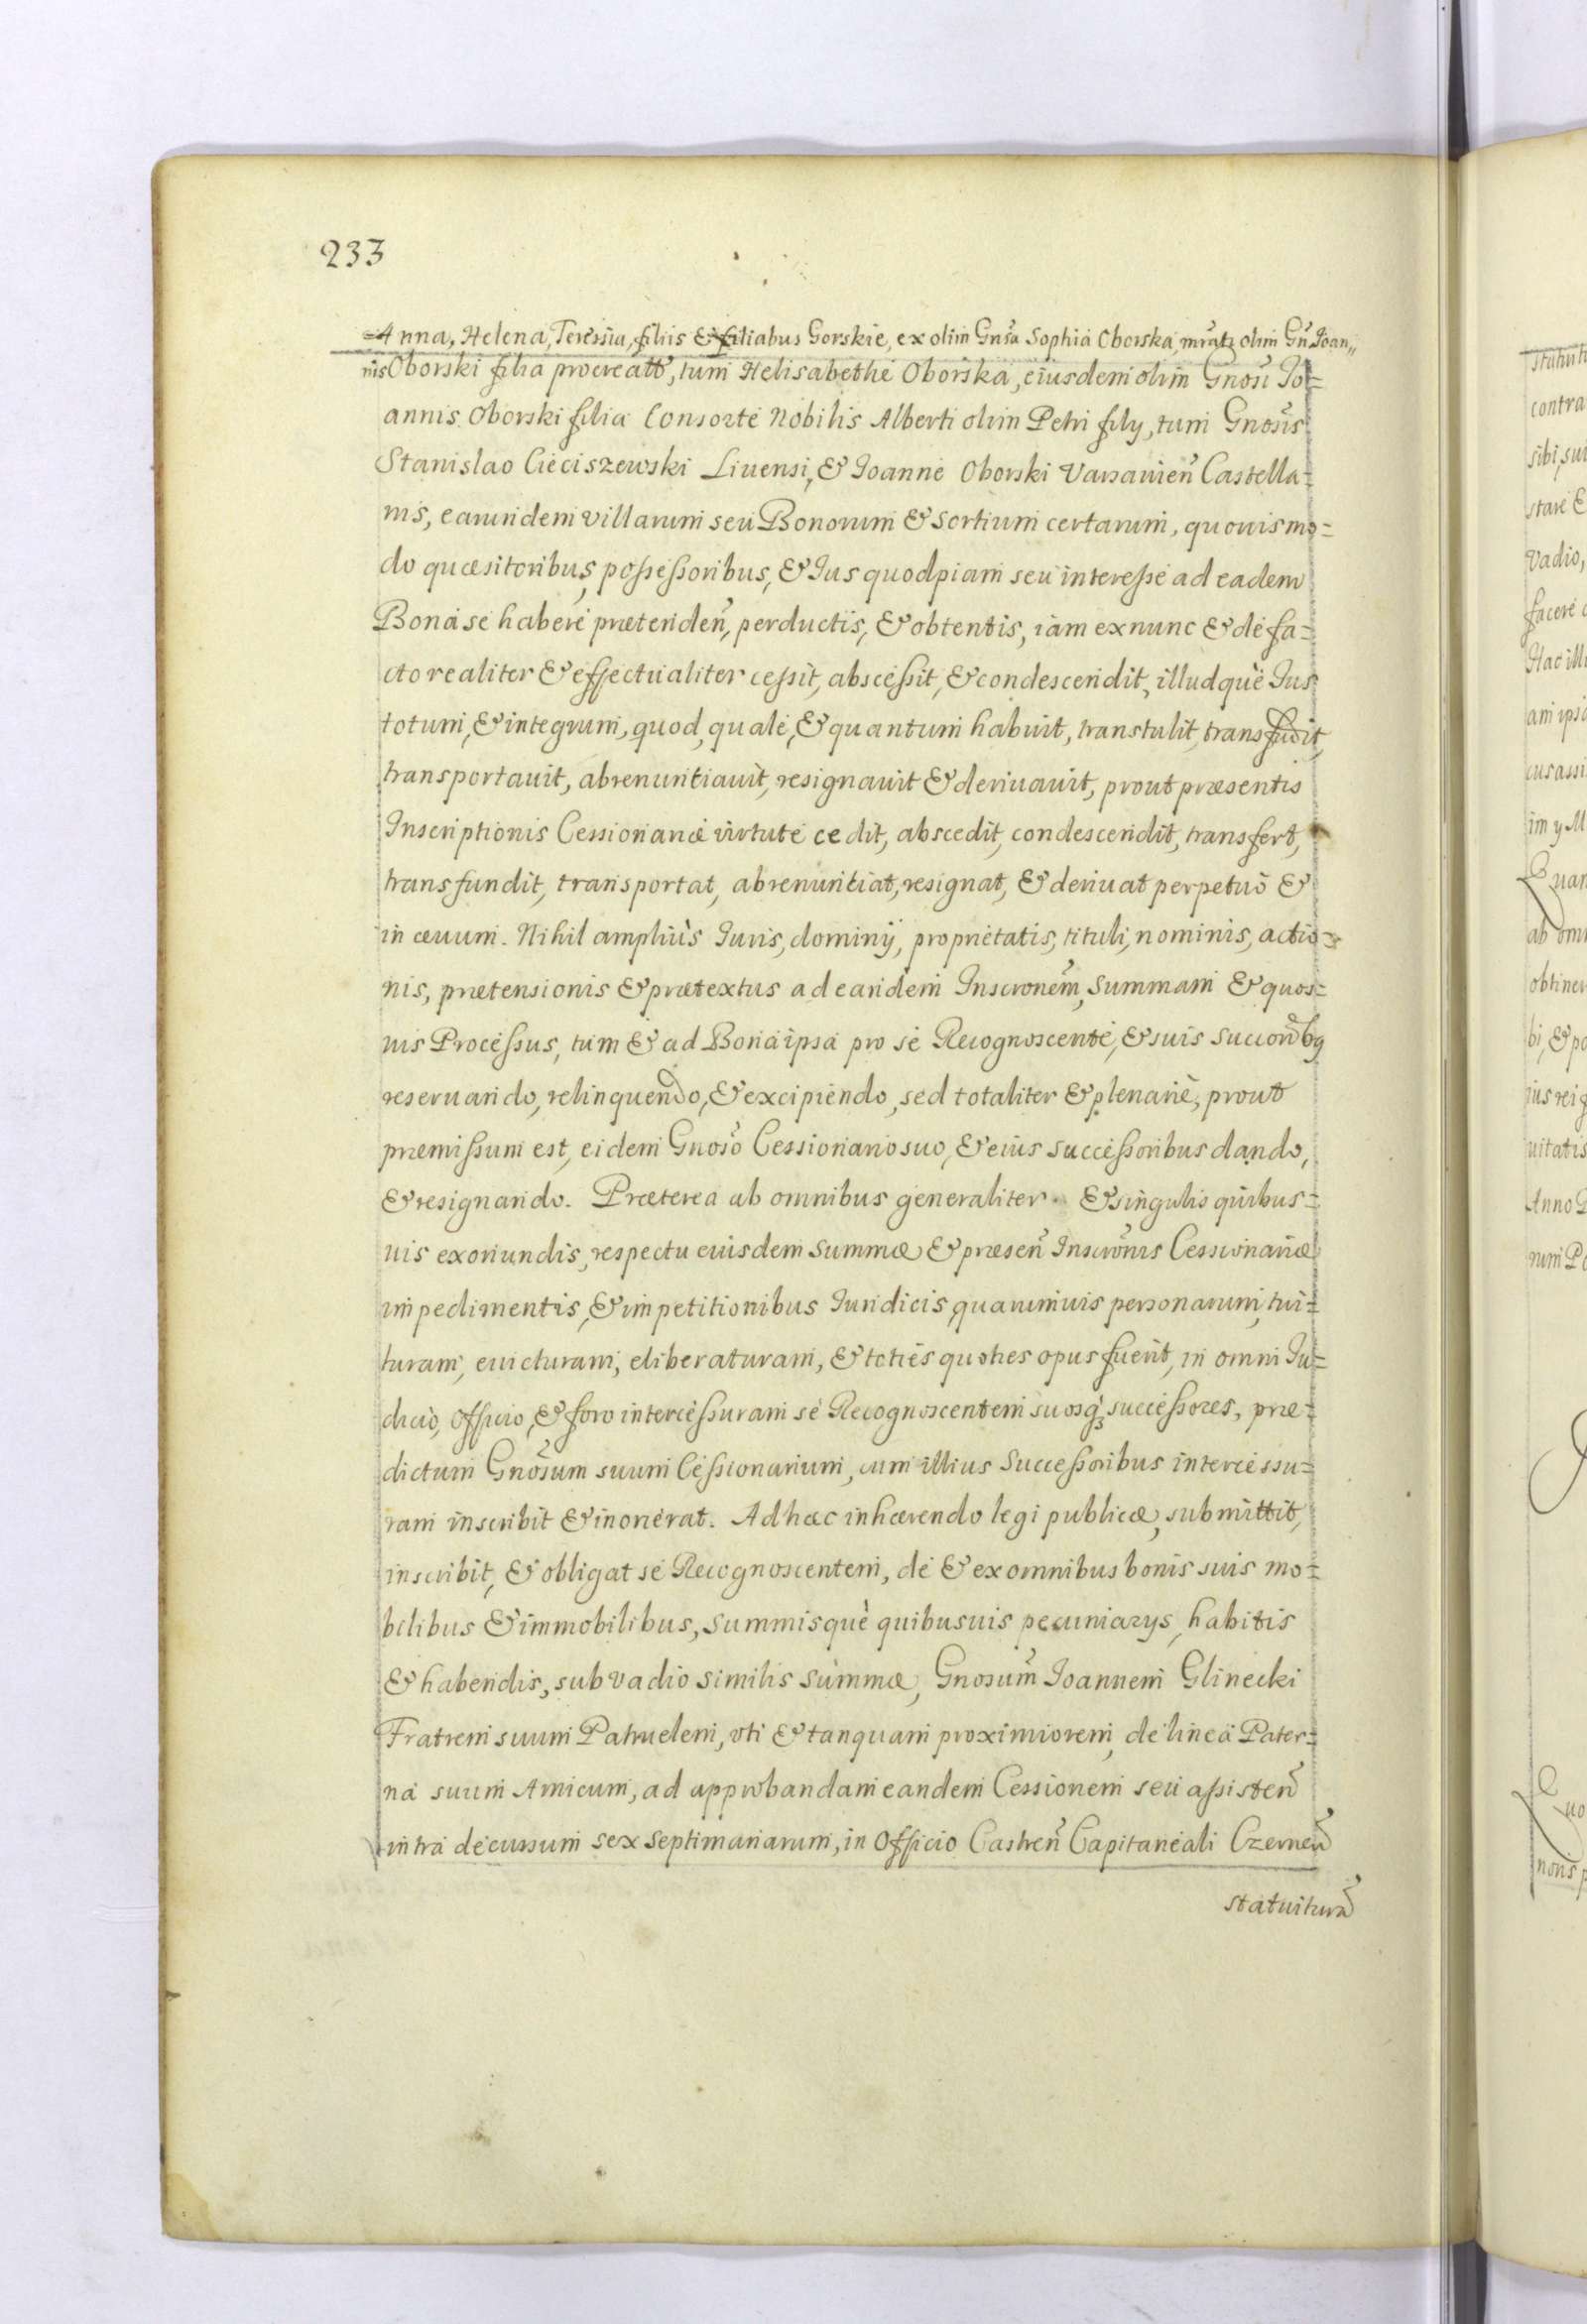 233
Anna, Helena, Teressia, filiis & filiabus Gorskie, ex olim Gnsa Sophia Oborska, mratz olim Gn Joan„
nis Oborski filia procreatt, tum Helisabethe Oborska, eiusdem olim Gnosi Jo=
annis Oborski filia Consorte Nobilis Alberti olim Petri fily, tum Gnosis
Stanislao Cieciszewski Liuensi, & Joanne Oborski Varsauien Castella=
nis, earundem villarum seu Bonorum & sortium certarum, quouis mo=
do quæsitoribus, possessoribus, & Jus quodpiam seu interesse ad eadem
Bona se habere prætenden, perductis, & obtentis, iam ex nunc & de fa=
cto realiter & effectualiter cessit, abscessit, & condescendit, illudquè Jus
totum, & integrum, quod, quale, & quantum habuit, transtulit, transfudit,
transportauit, abrenuntiauit, resignauit & deriuauit, prout præsentis
Inscriptionis Cessionariæ virtute cedit, abscedit, condescendit, transfert,
transfundit, transportat, abrenuntiat, resignat, & deriuat perpetuò &
in æuum. Nihil ampliùs Juris, dominÿ, proprietatis, tituli, nominis, actio=
nis, prætensionis & prætextus ad eandem Inscronem, Summam & quos=
uis Processus, tum & ad Bona ipsa pro se Recognoscente, & suis succorbq
reseruando, relinquendo, & excipiendo, sed totaliter & plenariè, prout
præmissum est, eidem Gnoso Cessionario suo, & eius successoribus dando,
& resignando. Præterea ab omnibus generaliter & singulis quibus=
uis exoriundis, respectu eiusdem Summæ & præsen Inscronis Cessionariæ
impedimentis, & impetitionibus Juridicis quarumuis personarum, tui=
turam, euicturam, eliberaturam, & toties quoties opus fuerit, in omni Ju=
dicio, Officio, & foro intercessuram se Recognoscentem suosq3 successores, præ=
dictum Gnosum suum Cessionarium, cum illius Successoribus intercessu=
ram inscribit & inonerat. Ad hæc inhærendo legi publicæ, submittit,
inscribit, & obligat se Recognoscentem, de & ex omnibus bonis suis mo=
bilibus & immobilibus, Summisquè quibusuis pecuniarys, habitis
& habendis, sub vadio similis summæ, Gnosum Joannem Glinecki
Fratrem suum Patruelem, vti & tanquam proximiorem, de linea Pater=
na suum Amicum, ad approbandam eandem Cessionem seu assisten
intra decursum sex septimanarum, in Officio Castren Capitaneali Czernen
statuitura